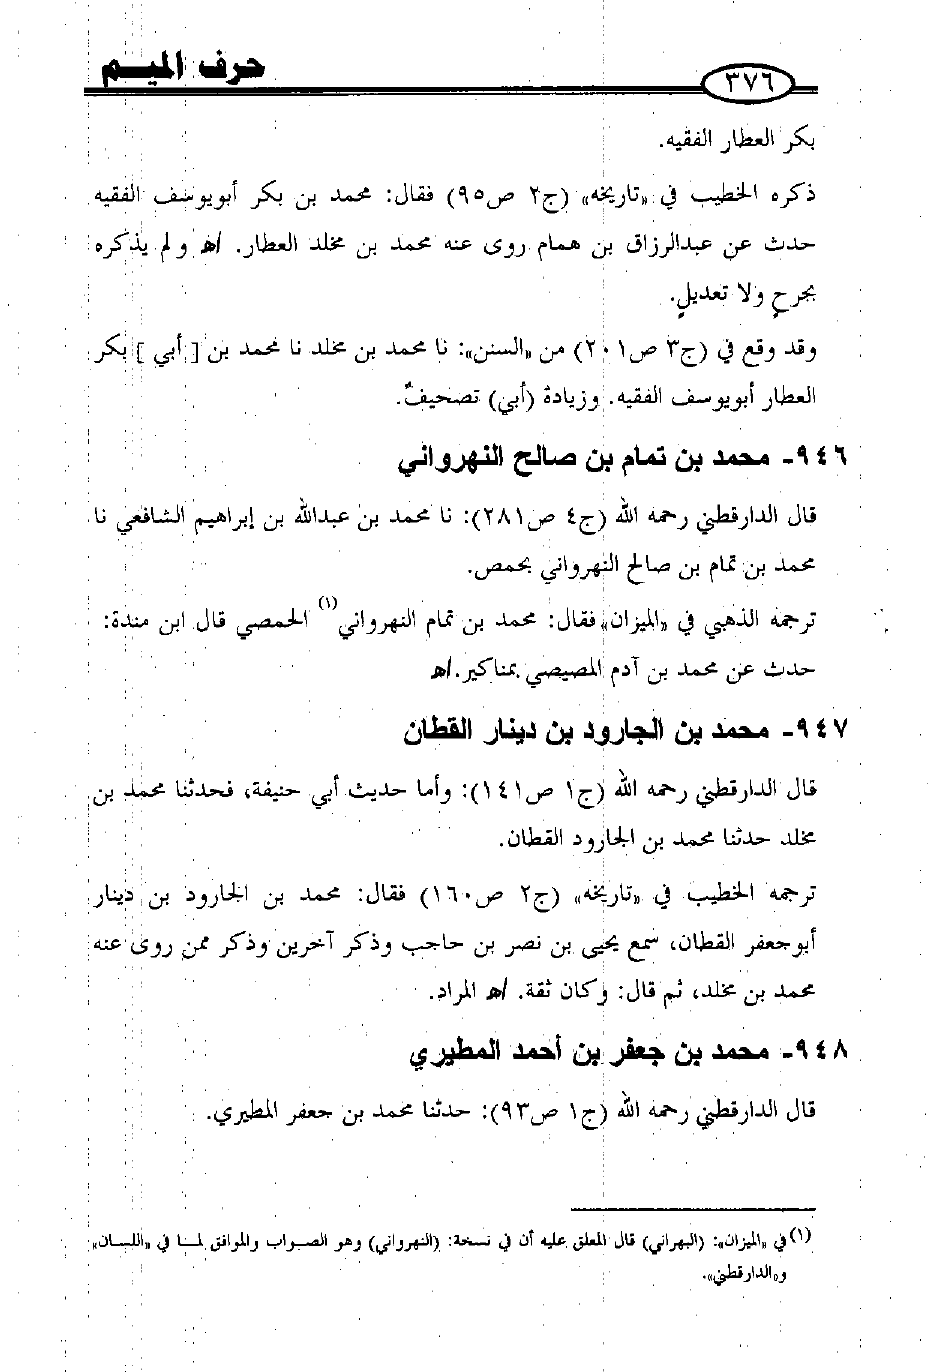 حرف الميم
٣٧٦
بكر العطار الفقيه.
ذكره الخطيب في «تاريخه» (ج٢ ص٩٥) فقال: محمد بن بكر أبويوسف الفقيه
حدث عن عبدالرزاق بن همام روى عنه محمد بن مخلد العطار. اهـ ولم يذكره
بجرحٍ ولا تعديلٍ.
وقد وقع في (ج٣ ص٢٠١) من «السنن»: نا محمد بن مخلد نا محمد بن [أبي] بكر
العطار أبويوسف الفقيه. وزيادة (أبي) تصحيفٌ.
٩٤٦- محمد بن تمام بن صالح النهرواني
قال الدارقطني رحمه الله (ج٤ ص٢٨١): نا محمد بن عبدالله بن إبراهيم الشافعي نا
محمد بن تمام بن صالح النهرواني بحمص.
ترجمه الذهبي في «الميزان» فقال: محمد بن تمام النهرواني(١) الحمصي قال ابن مندة:
حدث عن محمد بن آدم المصيصي بمناكير. اهـ
٩٤٧- محمد بن الجارود بن دينار القطان
قال الدارقطني رحمه الله (ج١ ص١٤١): وأما حديث أبي حنيفة، فحدثنا محمد بن
مخلد حدثنا محمد بن الجارود القطان.
ترجمه الخطيب في «تاريخه» (ج٢ ص١٦٠) فقال: محمد بن الجارود بن دينار
أبوجعفر القطان، سمع يحيى بن نصر بن حاجب وذكر آخرين وذكر ممن روى عنه
محمد بن مخلد، ثم قال: وكان ثقة. اهـ المراد.
٩٤٨- محمد بن جعفر بن أحمد المطيري
قال الدارقطني رحمه الله (ج١ ص٩٣): حدثنا محمد بن جعفر المطيري.
(١) في «الميزان»: (البهراني) قال المعلق عليه أن في نسخة: (النهرواني) وهو الصواب والموافق لما في «اللسان»
و«الدارقطني».